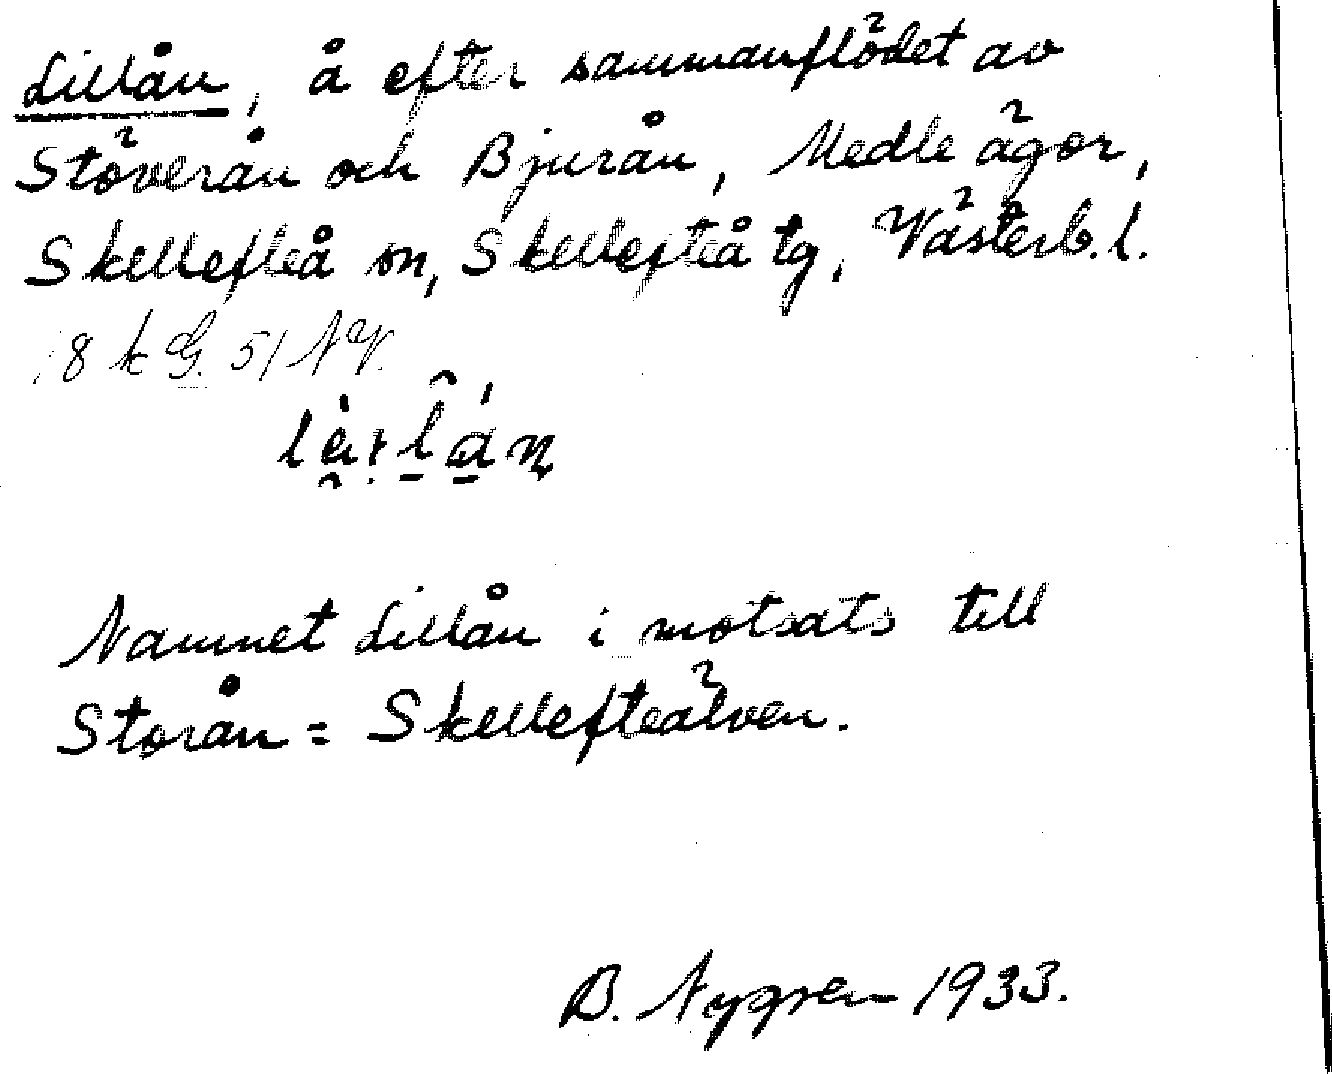 Lillån, å efter sammanflödet av
Stöverån och Bjurån, Medle ägor,
Skellefteå sn, Skellefteå tg, Västerb. l.
18 k G. 51 NV.
Namnet Lillån i motsats till
Storån = Skellefteälven.
B. Nygren 1933.